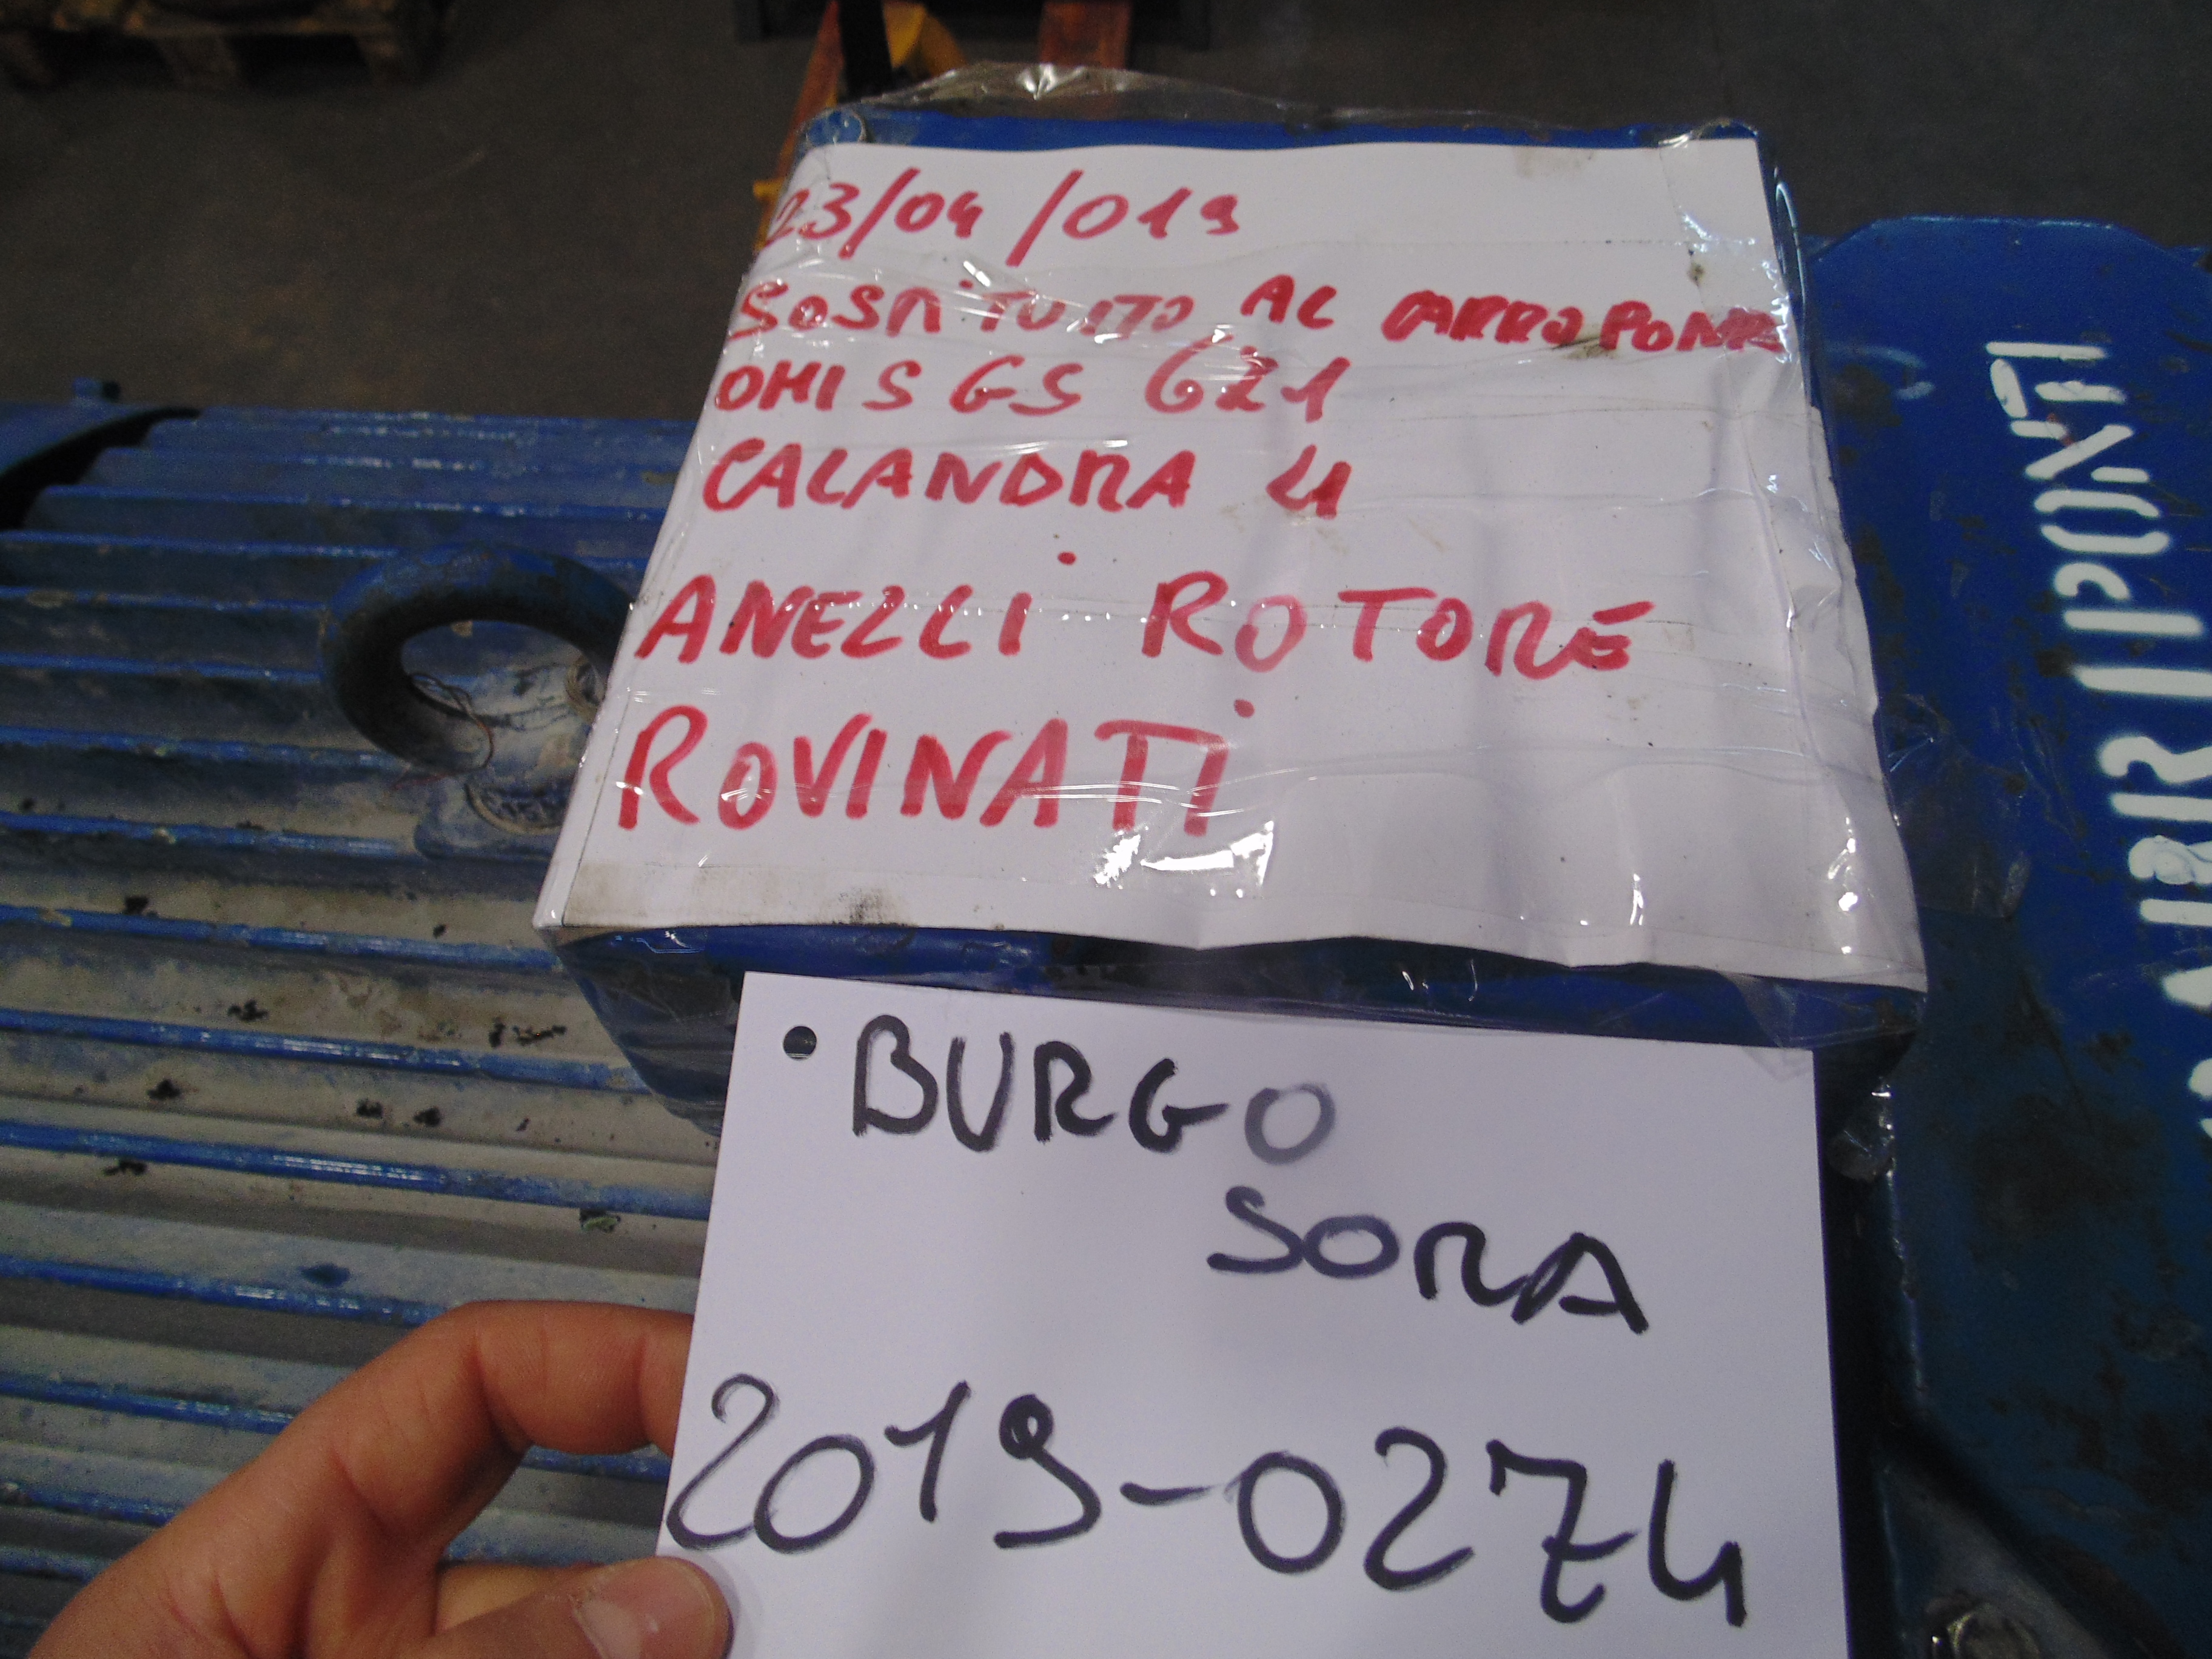 23/04/019
SOSTITUITO AL CARROPONTE
OMIS GS 621
CALANDRA 4
ANELLI ROTORE
ROVINATI
BURGO
SORA
2019-0274